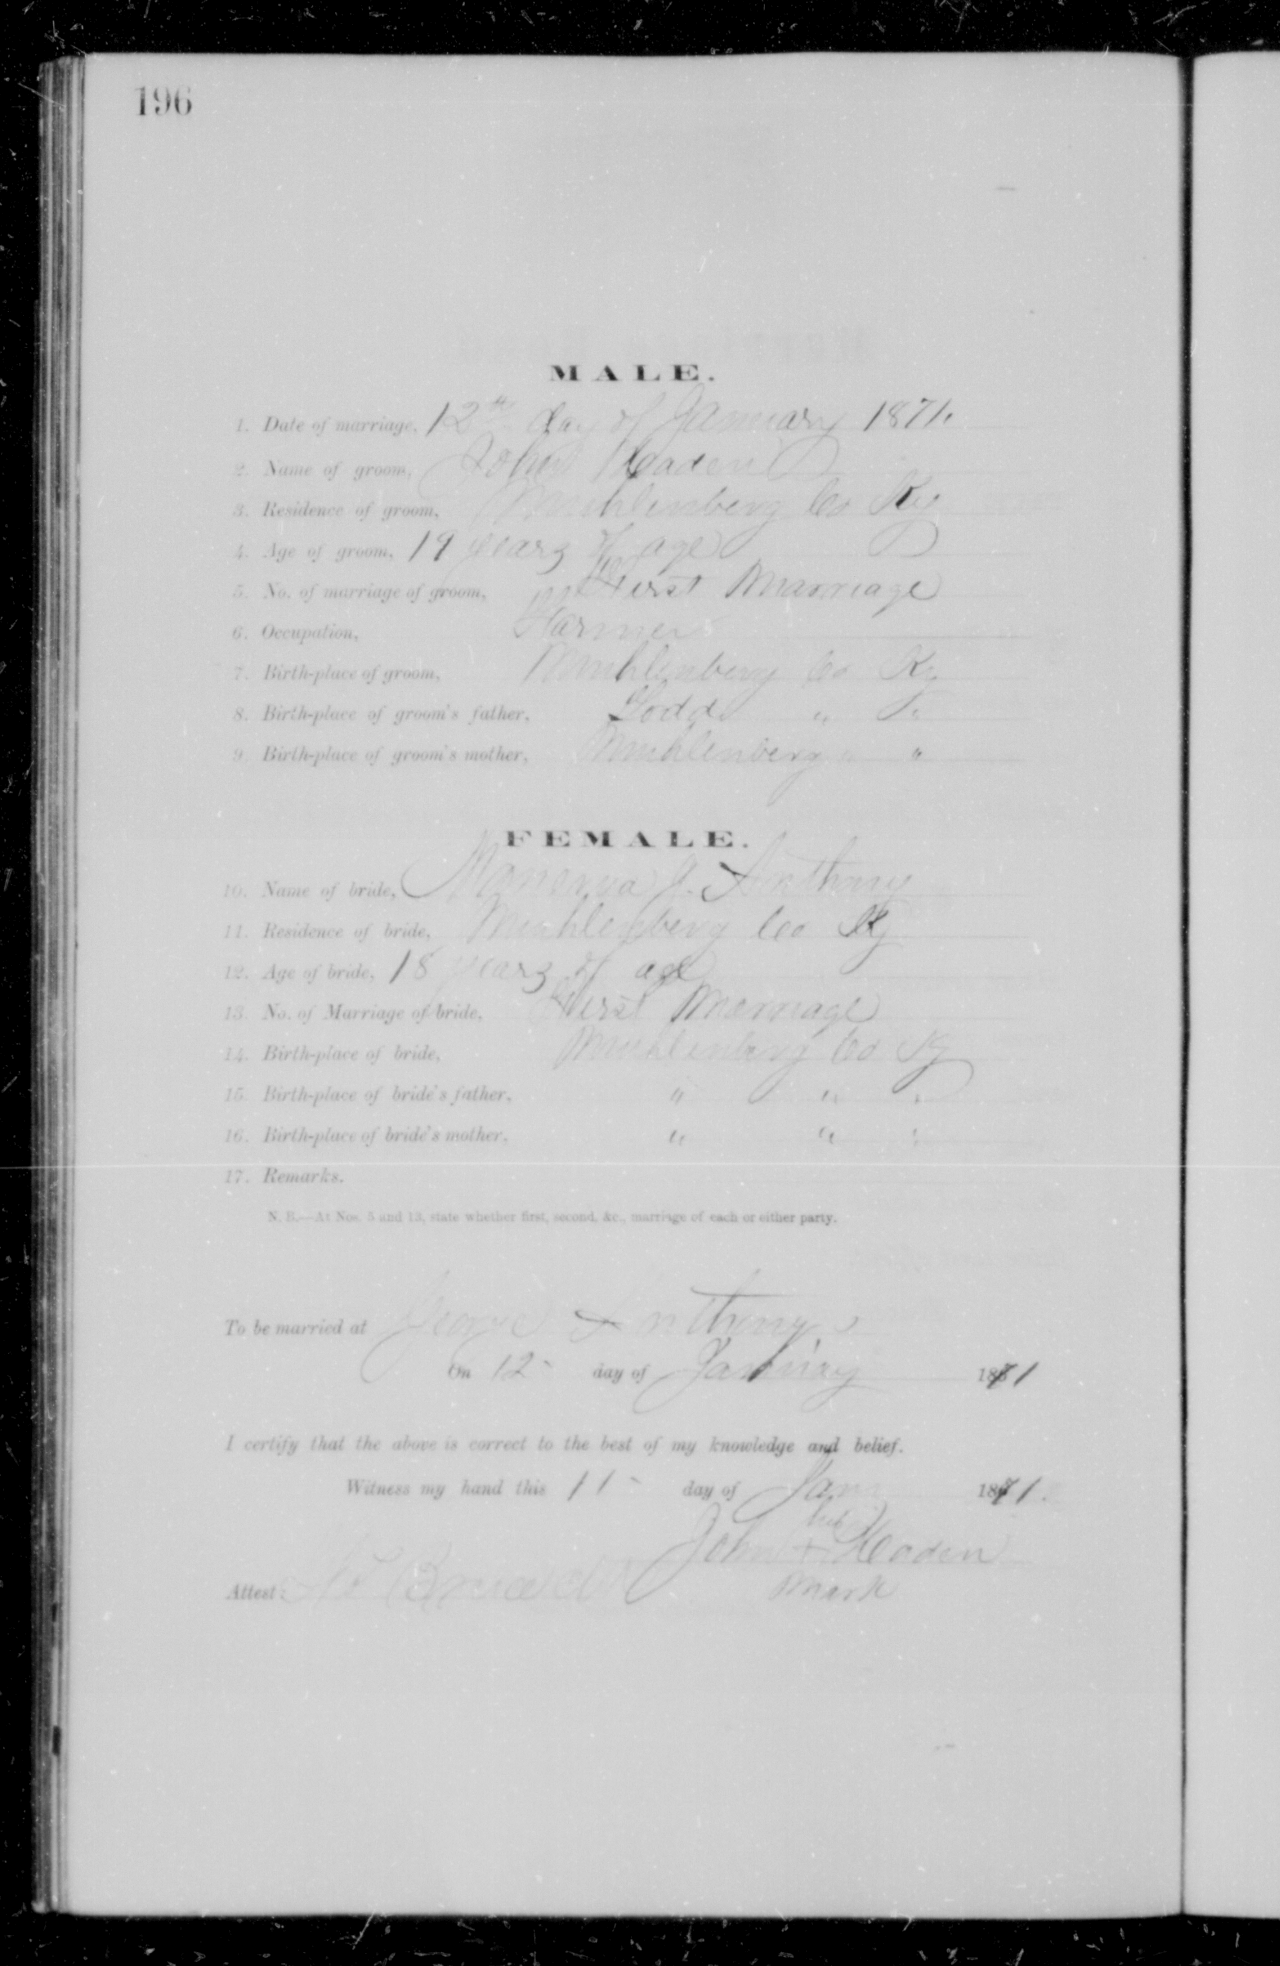 196
MALE.
1. Date of marriage, 12th day of January 1871.
2. Name of groom, John Headen
3. Residence of groom, Muhlenberg Co Ky
4. Age of groom, 19 years of age
5. No. of marriage of groom, First Marriage
6. Occupation, Farmer
7. Birth-place of groom, Muhlenberg Co Ky
8. Birth-place of groom's father, Todd " "
9. Birth-place of groom's mother, Muhlenberg " "
FEMALE.
10. Name of bride, J. Anthony
11. Residence of bride, Muhlenberg Co Ky
12. Age of bride, 18 years of age
13. No. of Marriage of bride, First Marriage
14. Birth-place of bride, Muhlenberg Co Ky
15. Birth-place of bride's father, " " "
16. Birth-place of bride's mother, " " "
17. Remarks.
N. B.—At Nos. 5 and 13, state whether first, second, &c., marriage of each or either party.
To be married at George Anthony's
On 12 day of January 1871
I certify that the above is correct to the best of my knowledge and belief.
Witness my hand this 11 day of Jan 1871.
his
John + Headen
Attest: mark